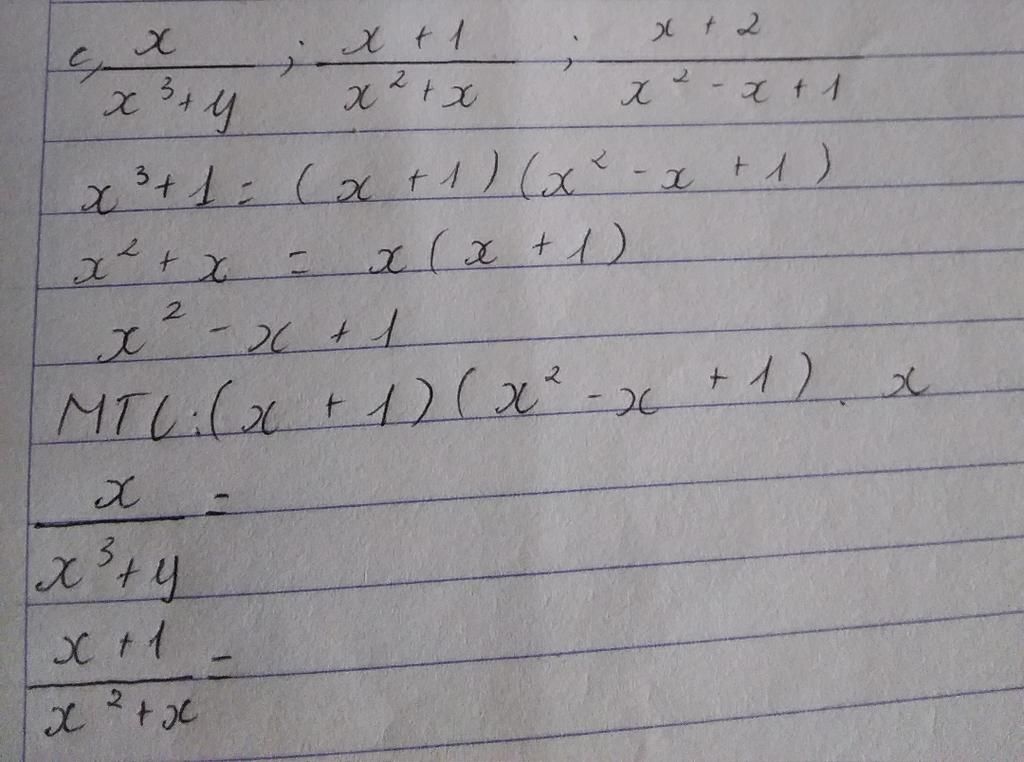 c, x / x³ + y ; x + 1 / x² + x ; x + 2 / x² - x + 1
x³ + 1 = (x + 1)(x² - x + 1)
x² + x = x(x + 1)
x² - x + 1
MTC: (x + 1)(x² - x + 1). x
x / x³ + y =
x + 1 / x² + x =